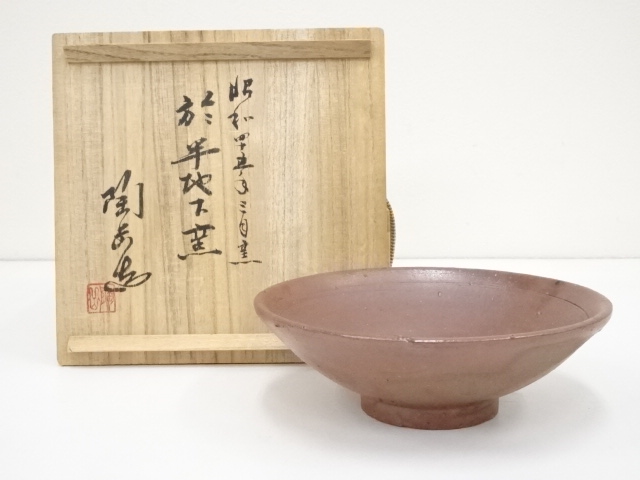 昭和四十五年三月窯
於半地下窯
陶岳造